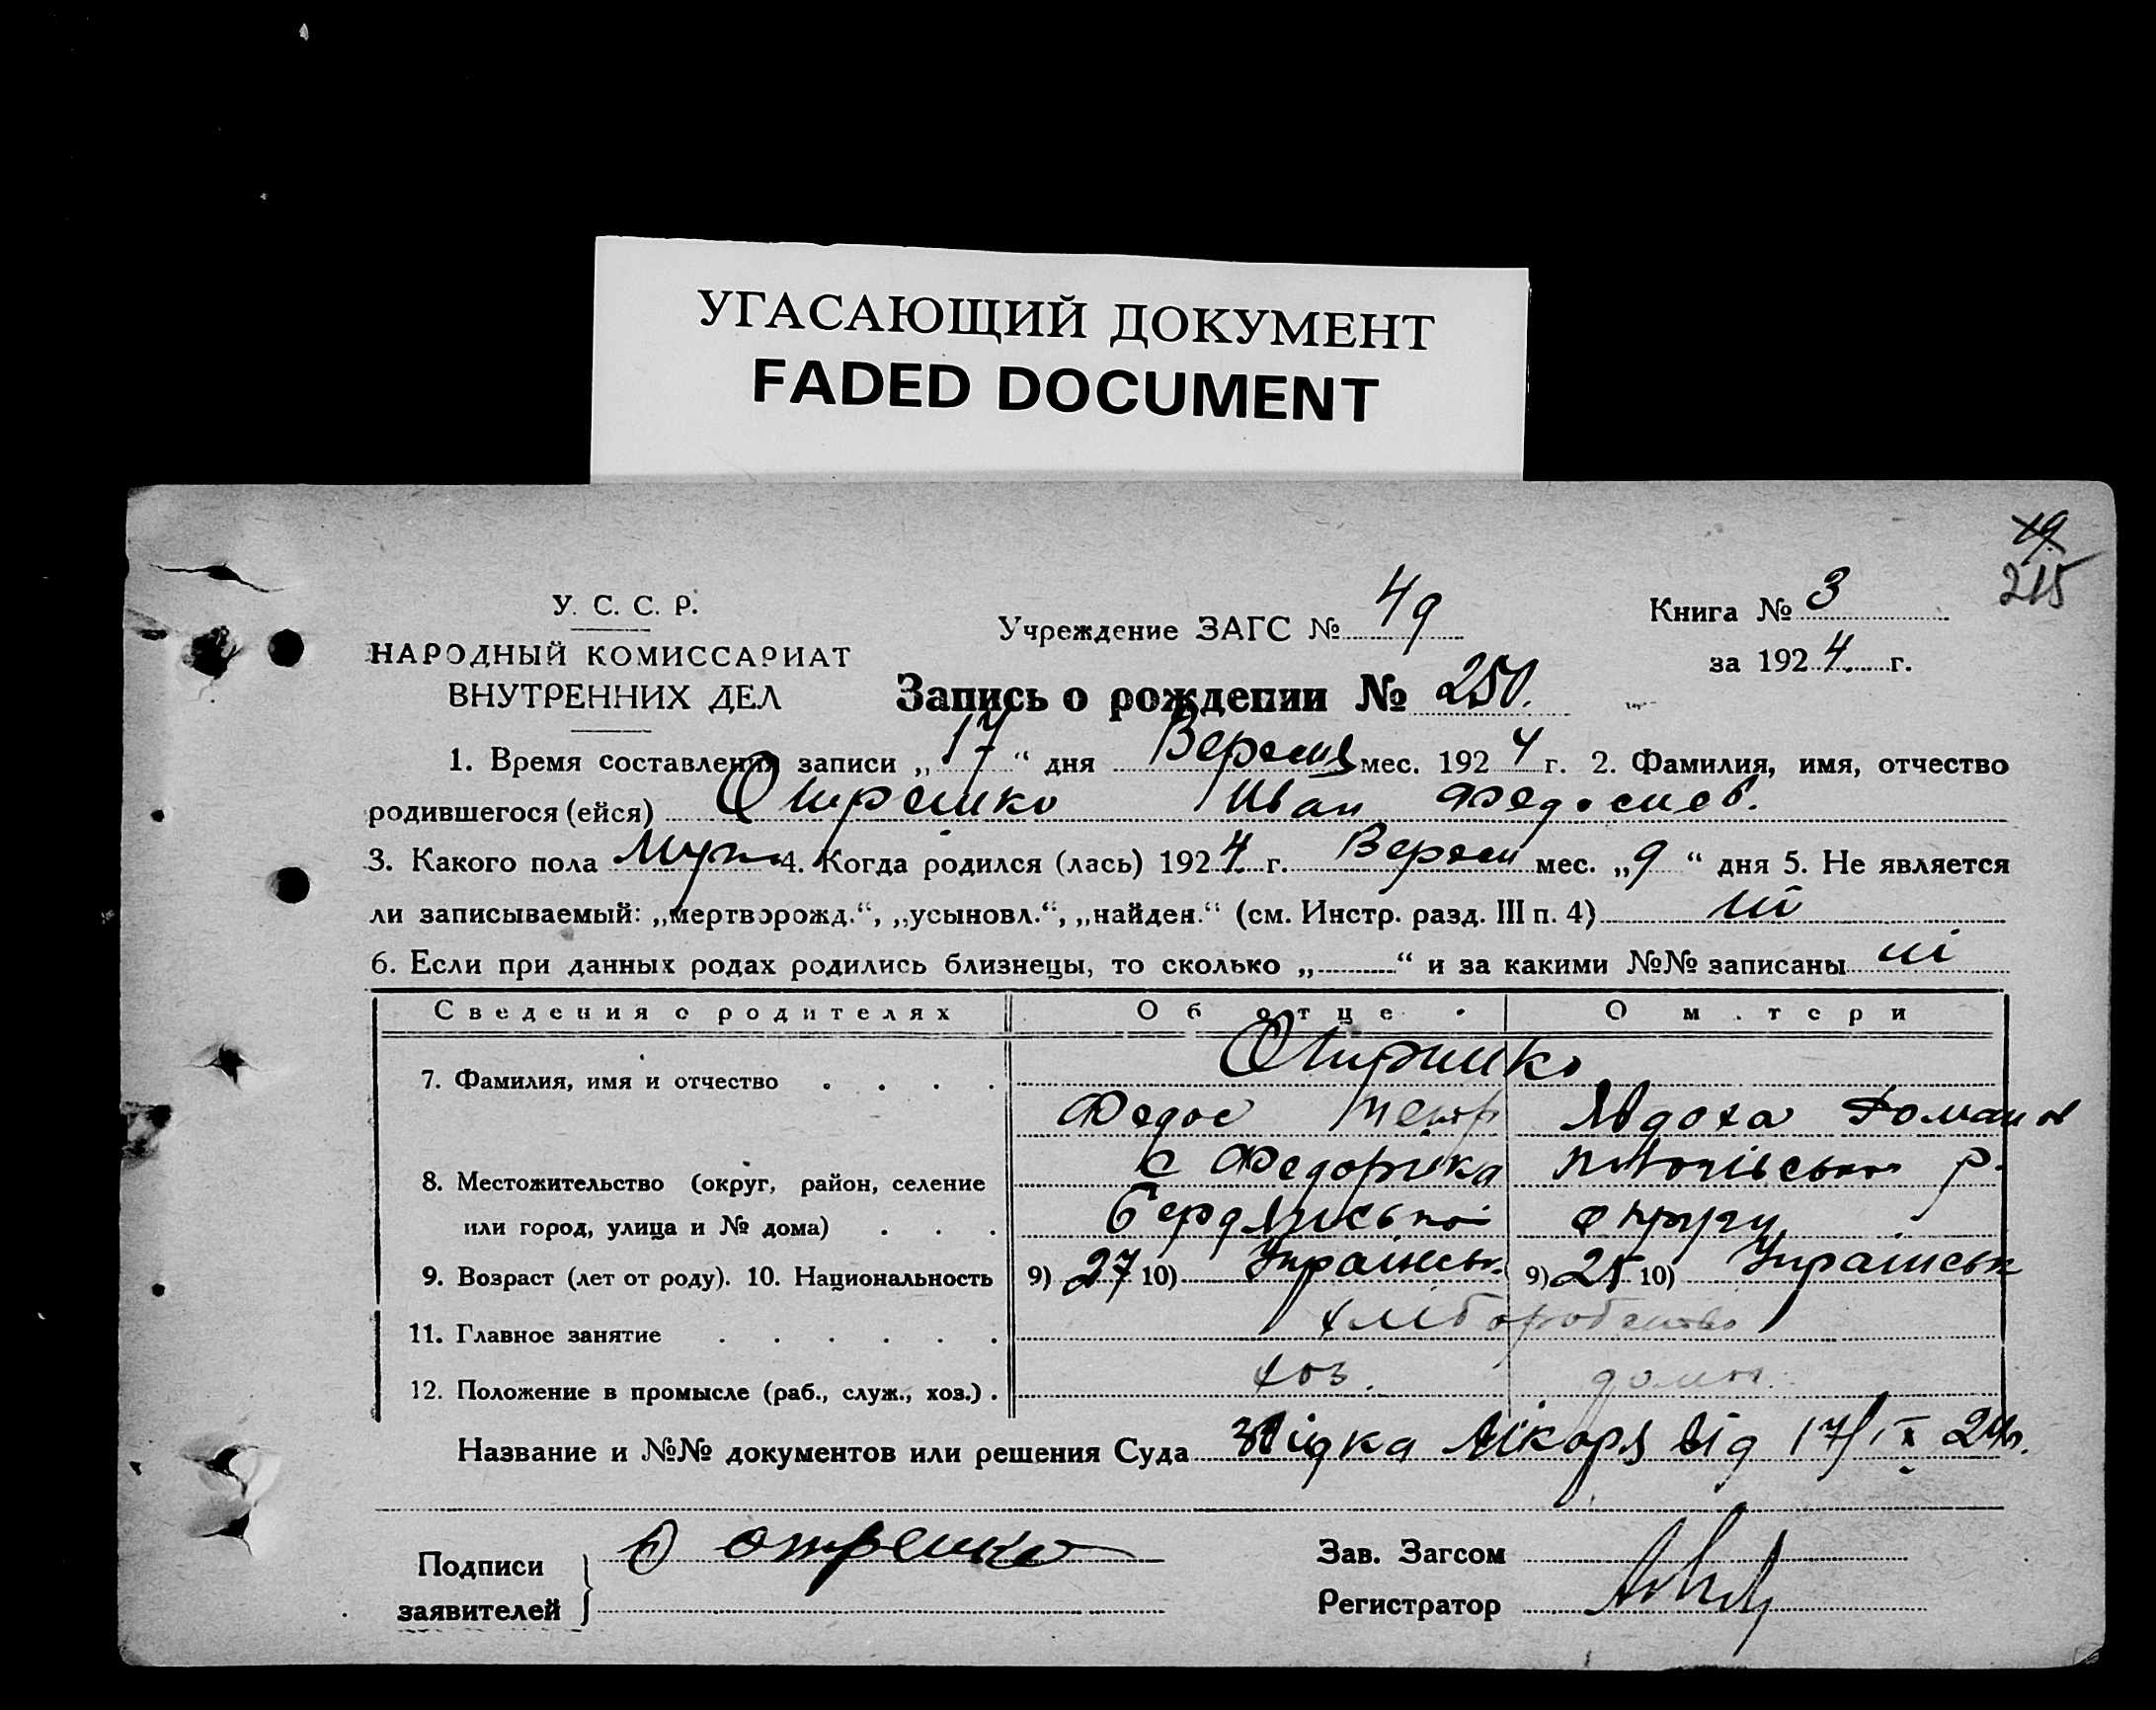 УГАСАЮЩИЙ ДОКУМЕНТ
FADED DOCUMENT
19
215
У. С. С. Р.
НАРОДНЫЙ КОМИССАРИАТ
ВНУТРЕННИХ ДЕЛ
Учреждение ЗАГС № 49
Книга № 3
за 1924 г.
Запись о рождении № 250.
1. Время составления записи „17“ дня Вересня мес. 1924 г. 2. Фамилия, имя, отчество
родившегося (ейся) Отрешко Иван Федосиев.
3. Какого пола Муж 4. Когда родился (лась) 1924 г. Вересн мес. „9“ дня 5. Не является
ли записываемый: „мертворожд.“, „усыновл.“, „найден.“ (см. Инстр. разд. III п. 4) ні
6. Если при данных родах родились близнецы, то сколько „ “ и за какими №№ записаны ні
Сведения о родителях Об отце О матери
7. Фамилия, имя и отчество . . . . Отришко
Федос Петр Явдоха Роман
с Федорівка
8. Местожительство (округ, район, селение
или город, улица и № дома) . . . Бердянської округу
9. Возраст (лет от роду). 10. Национальность 9) 27 10) Українськ. 9) 25 10) Українськ
11. Главное занятие . . . . . . хліборобство
12. Положение в промысле (раб., служ., хоз.) . хоз. домог.
Название и №№ документов или решения Суда Звідка лікаря від 17/IX 24р.
Подписи
заявителей
Отрешко
Зав. Загсом
Регистратор